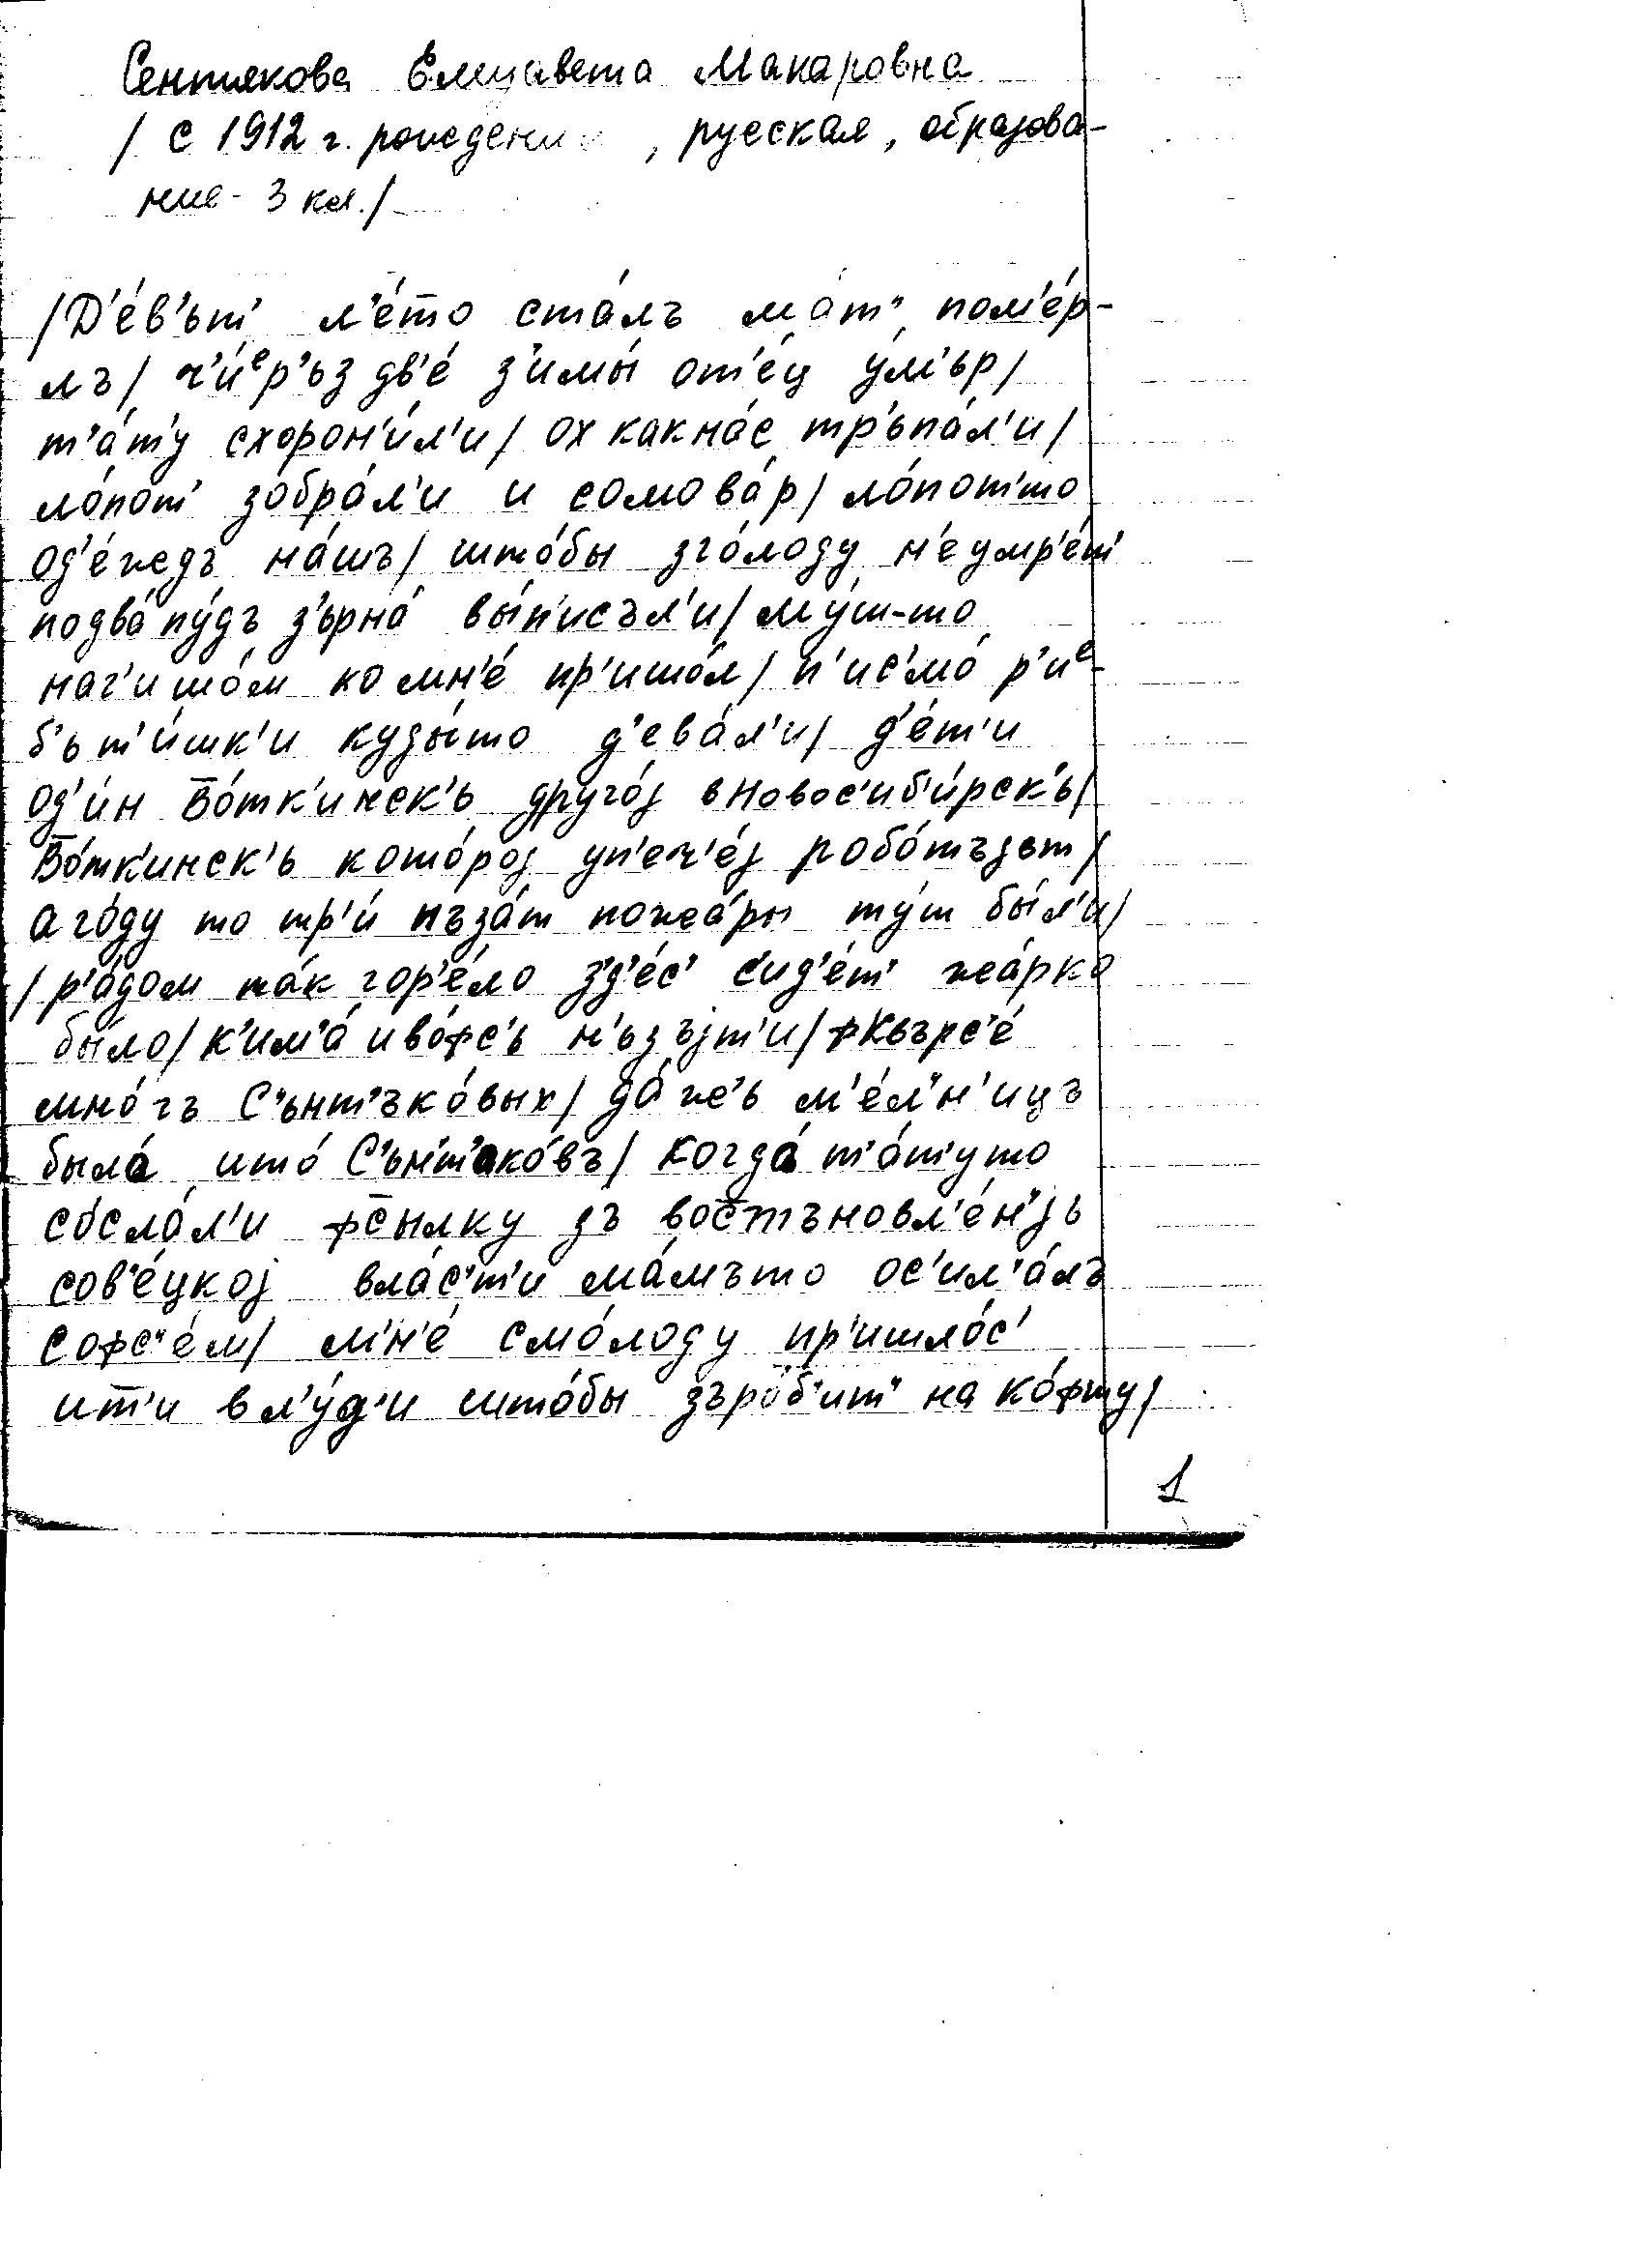 Сентякова Елизавета Макаровна
/ с 1912 г. рождения, русская, образова-
ние - 3 кл./
/Д'е́в'ьт' л'е́то ста́лъ ма́т' пом'е́р-
лъ/ ч'и́ᵉр'ьз дв'е́ з'имы́ от'е́ц у́м'ьр/
т'а́т'у схорон'и́л'и/ ох какна́с тр'ьпа́л'и/
ло́пот' зобра́л'и и сомова́р/ ло́пот'то
од'е́ждъ на́шъ/ што́бы зго́лоду н'еумр'е́т'
подва́ пу́дъ з'ьрна́ вы́п'исъл'и/ му́ш-то
наг'ишо́м ко мн'е́ пр'ишо́л/ п'ис'мо́ р'иᵉ-
б'ьт'и́шк'и куды́то д'ева́л'и/ д'е́т'и
од'и́н во́тк'инск'ь друго́j вновос'иб'и́рск'ь/
во́тк'инск'ь кото́роj уп'еч'е́j робо́тъjьт/
аго́ду то тр'и́ нъза́т пожа́ры ту́т бы́л'и/
/р'а́дом та́к гор'е́ло зд'е́с' с'ид'е́т' жа́рко
бы́ло/ к'им'а́ иво́фс'ь н'ьзъjт'и/ фкъърс'е́
мно́гъ С'ьнт'ъко́вых/ да́ж'ь м'е́л'н'ицъ
была́ што́ С'ьнт'ако́въ/ когда́ т'а́т'уто
сосла́л'и фсы́лку зъ востъновл'е́н'jь
сов'е́цкоj вла́с'т'и ма́мъто ос'ил'а́лъ
софс'е́м/ м'н'е́ смо́лоду пр'ишло́с'
ит'и в л'у́д'и што́бы зъро́б'ит' на ко́фту/
1